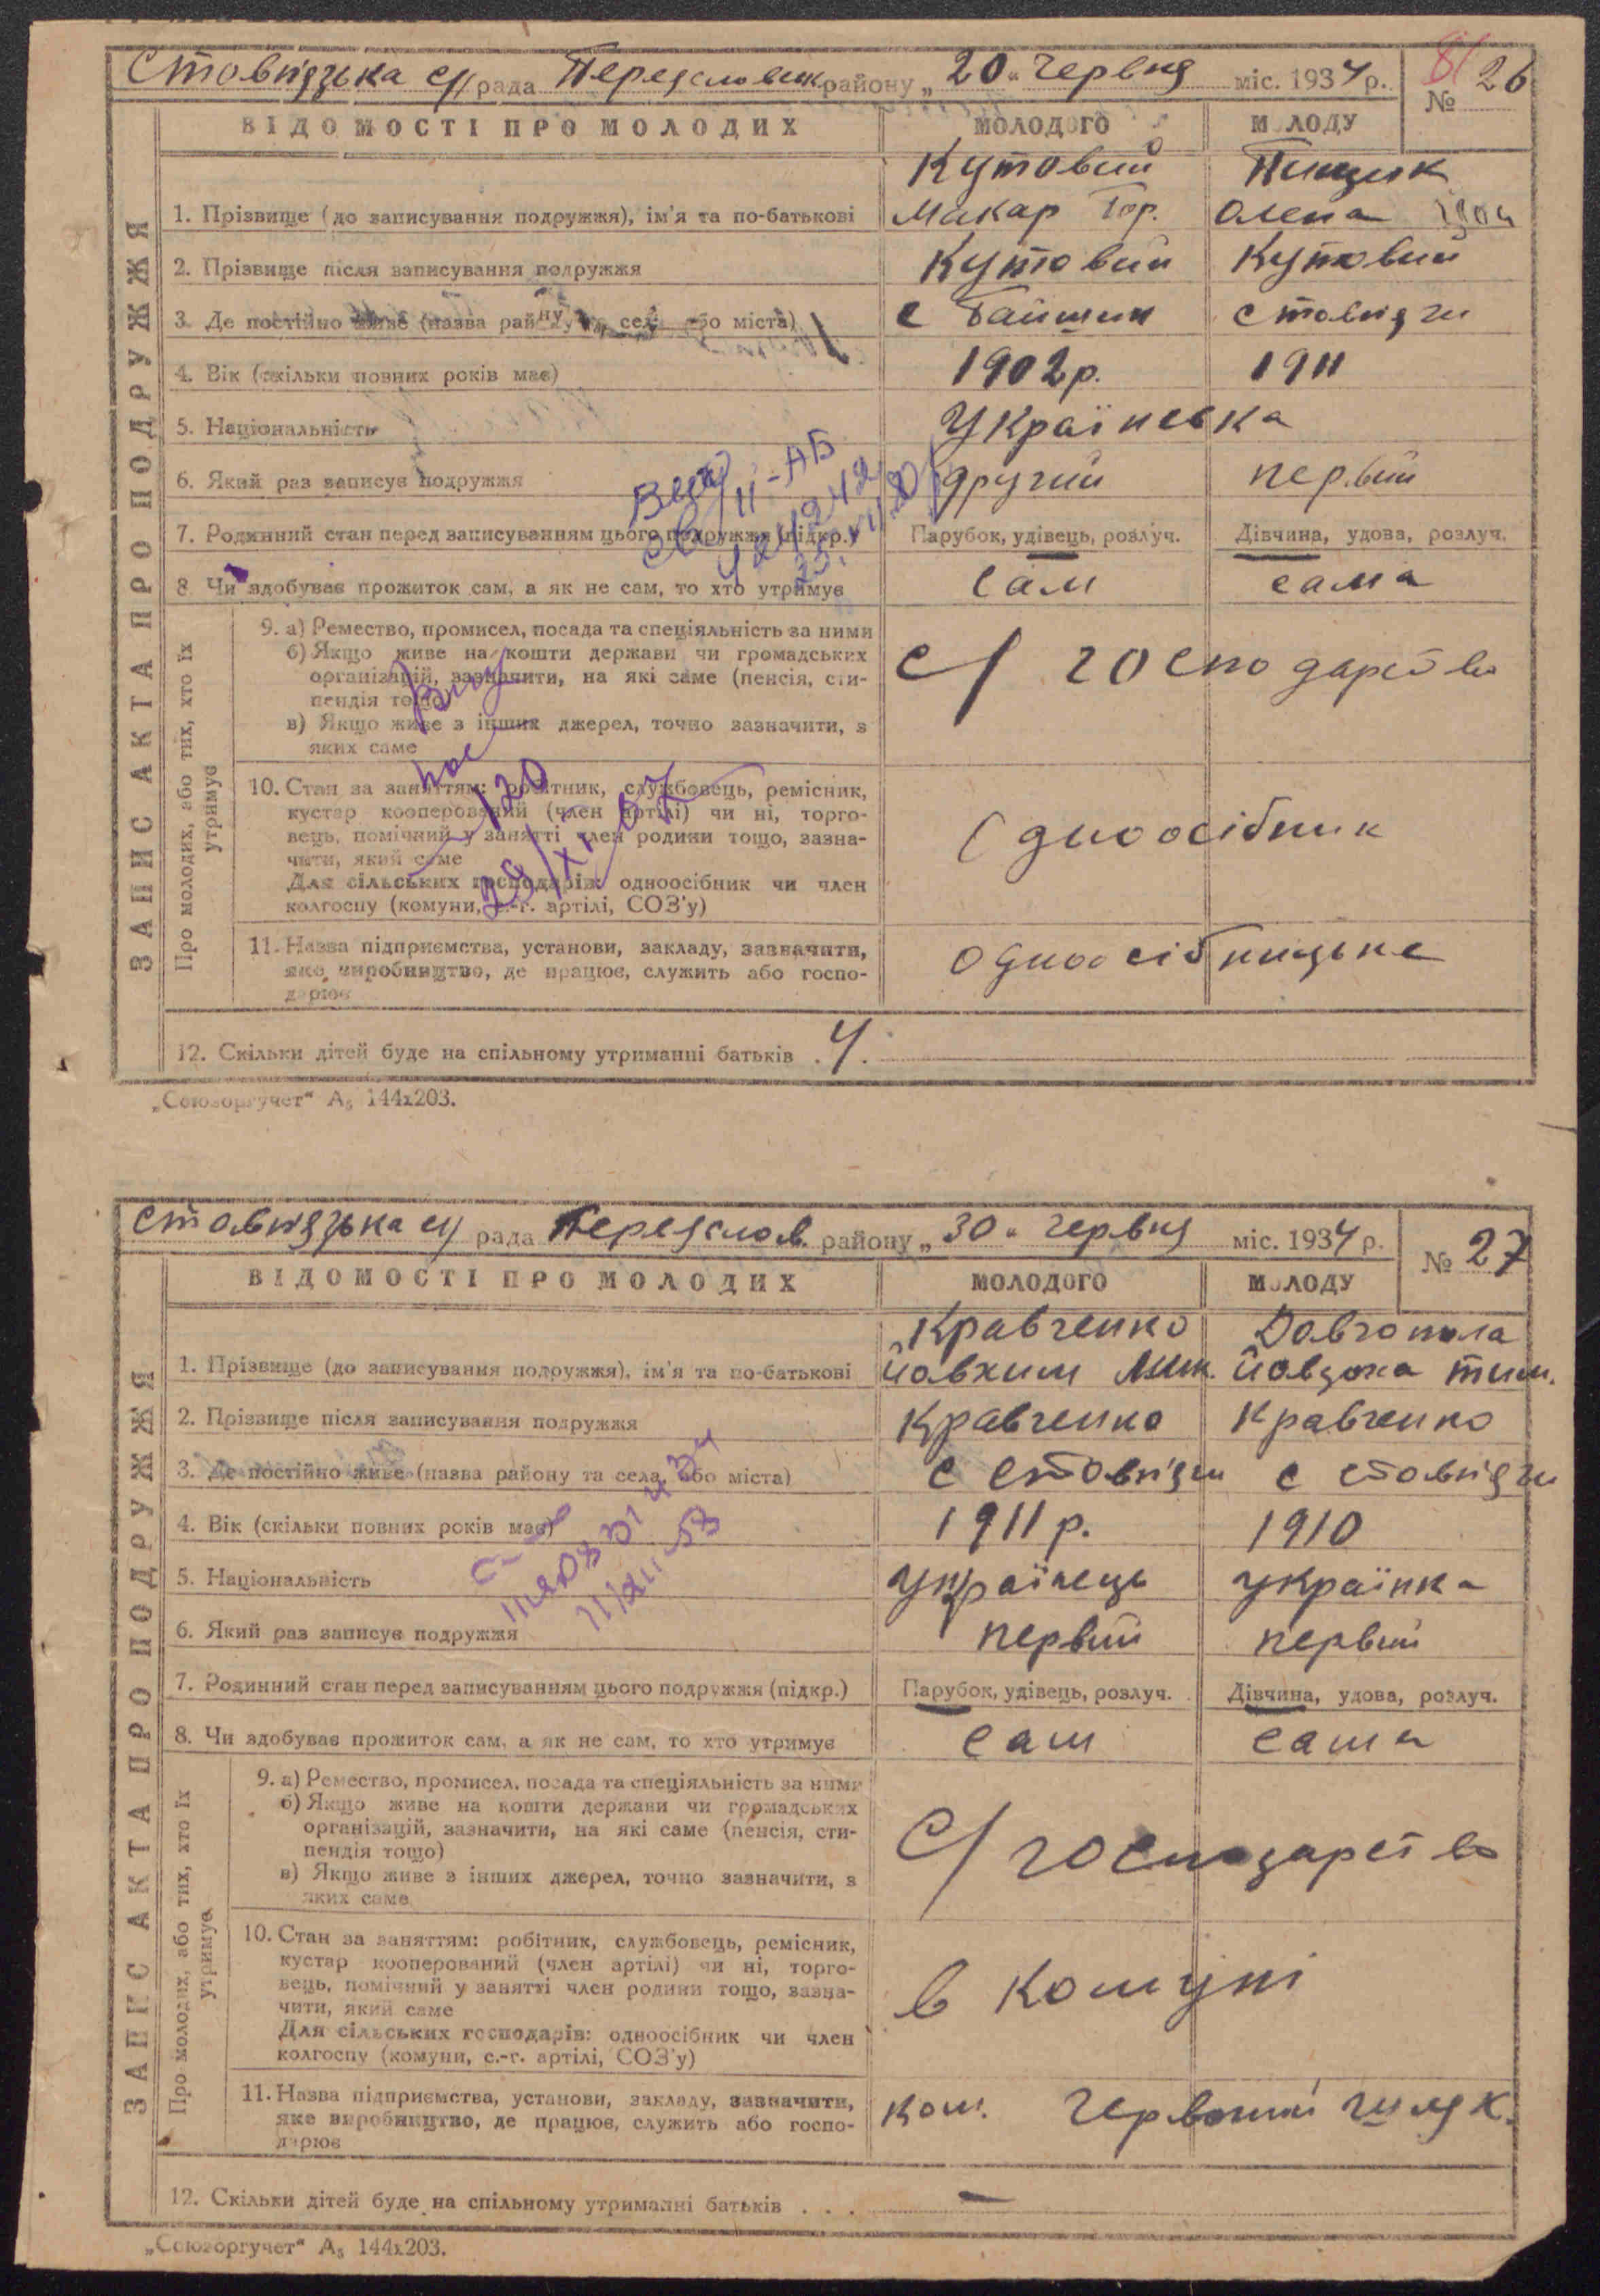 Стовп'язька с/рада Переяславськ району „20" червня міс. 1934 р.
№ 26
81
ВІДОМОСТІ ПРО МОЛОДИХ МОЛОДОГО МОЛОДУ
ЗАПИС АКТА ПРО ПОДРУЖЖЯ
Кутовий
1. Прізвище (до записування подружжя), ім'я та по-батькові Макар Гор. Олена
2. Прізвище після записування подружжя Кутовий Кутовий
3. Де постійно живе (назва району та села або міста) с стовп'яги
4. Вік (скільки повних років має) 1902р. 1911
5. Національність Українська
6. Який раз записує подружжя другий первий
7. Родинний стан перед записуванням цього подружжя (підкр.) Парубок, удівець, розлуч. Дівчина, удова, розлуч.
8. Чи здобуває прожиток сам, а як не сам, то хто утримує сам сама
Про молодих, або тих, хто їх утримує
9. а) Ремество, промисел, посада та спеціяльність за ними
б) Якщо живе на кошти держави чи громадських
організацій, зазначити, на які саме (пенсія, сти-
пендія тощо)
в) Якщо живе з інших джерел, точно зазначити, з
яких саме
с/господарство
10. Стан за заняттям: робітник, службовець, ремісник,
кустар кооперований (член артілі) чи ні, торго-
вець, помічний у занятті член родини тощо, зазна-
чити, який саме
Для сільських господарів: одноосібник чи член
колгоспу (комуни, с.-г. артілі, СОЗ'у)
Одноосібник
11. Назва підприємства, установи, закладу, зазначити,
яке виробництво, де працює, служить або госпо-
дарює
одноосібницьке
12. Скільки дітей буде на спільному утриманні батьків . 4.
„Союзоргучет" А5 144х203.
Стовп'язька с/ рада Переяслов. району „30" червня міс. 1934 р.
№ 27
ВІДОМОСТІ ПРО МОЛОДИХ МОЛОДОГО МОЛОДУ
ЗАПИС АКТА ПРО ПОДРУЖЖЯ
Кравченко Довгопола
1. Прізвище (до записування подружжя), ім'я та по-батькові Йовхим Мик. Йовдоха Тим.
2. Прізвище після записування подружжя Кравченко Кравченко
3. Де постійно живе (назва району та села або міста) с стовп'яги с стовп'яги
4. Вік (скільки повних років має) 1911р. 1910
5. Національність українець українка
6. Який раз записує подружжя первий первий
7. Родинний стан перед записуванням цього подружжя (підкр.) Парубок, удівець, розлуч. Дівчина, удова, розлуч.
8. Чи здобуває прожиток сам, а як не сам, то хто утримує сам сама
Про молодих, або тих, хто їх утримує
9. а) Ремество, промисел, посада та спеціяльність за ними
б) Якщо живе на кошти держави чи громадських
організацій, зазначити, на які саме (пенсія, сти-
пендія тощо)
в) Якщо живе з інших джерел, точно зазначити, з
яких саме
с/господарство
10. Стан за заняттям: робітник, службовець, ремісник,
кустар кооперований (член артілі) чи ні, торго-
вець, помічний у занятті член родини тощо, зазна-
чити, який саме
Для сільських господарів: одноосібник чи член
колгоспу (комуни, с.-г. артілі, СОЗ'у)
в комуні
11. Назва підприємства, установи, закладу, зазначити,
яке виробництво, де працює, служить або госпо-
дарює
ком. червоний шлях.
12. Скільки дітей буде на спільному утриманні батьків . . . —
„Союзоргучет" А5 144х203.